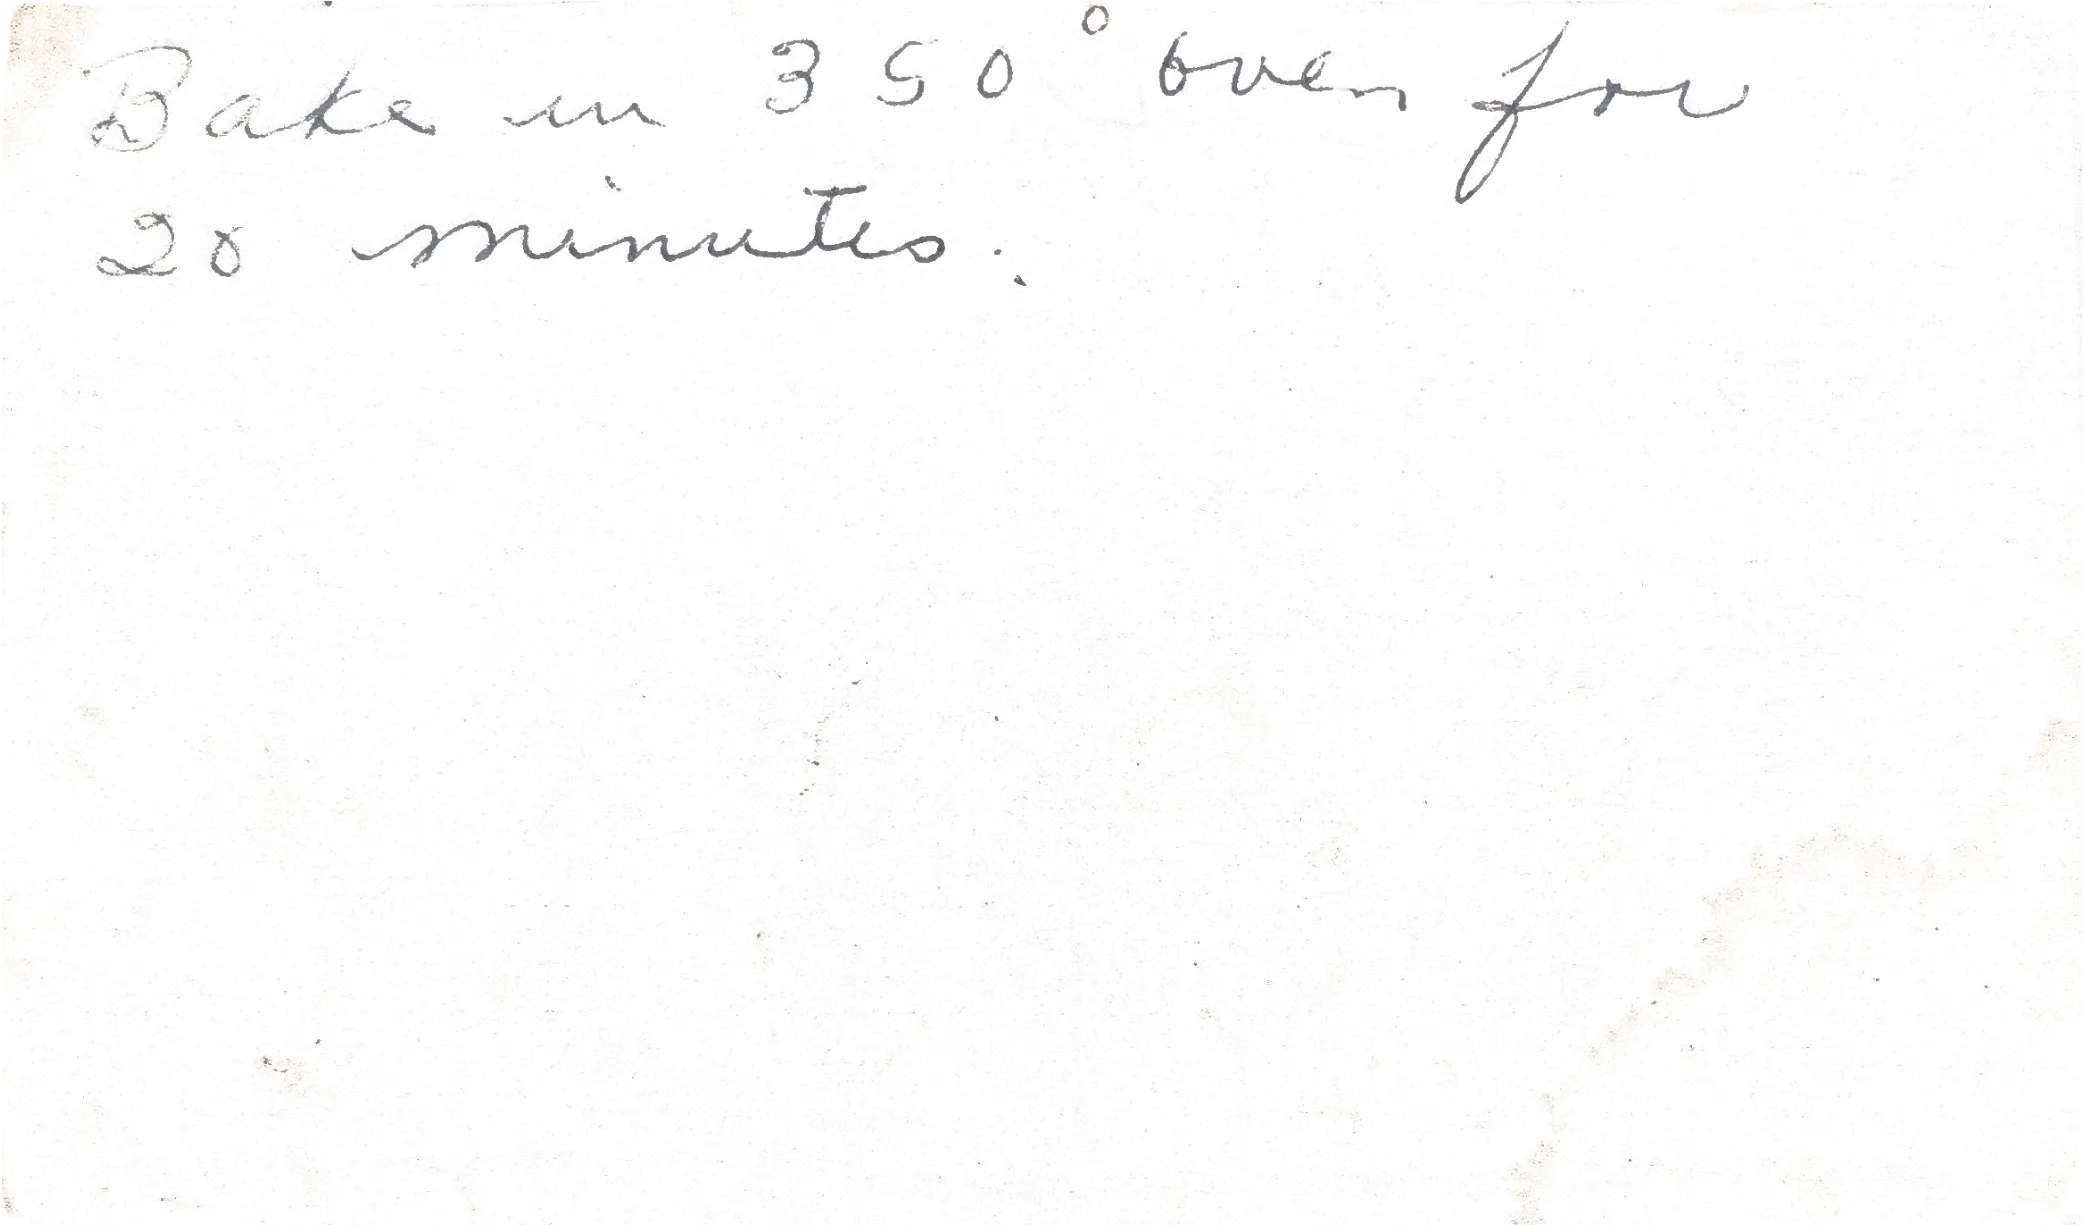 Bake in 350° oven for
20 minutes.